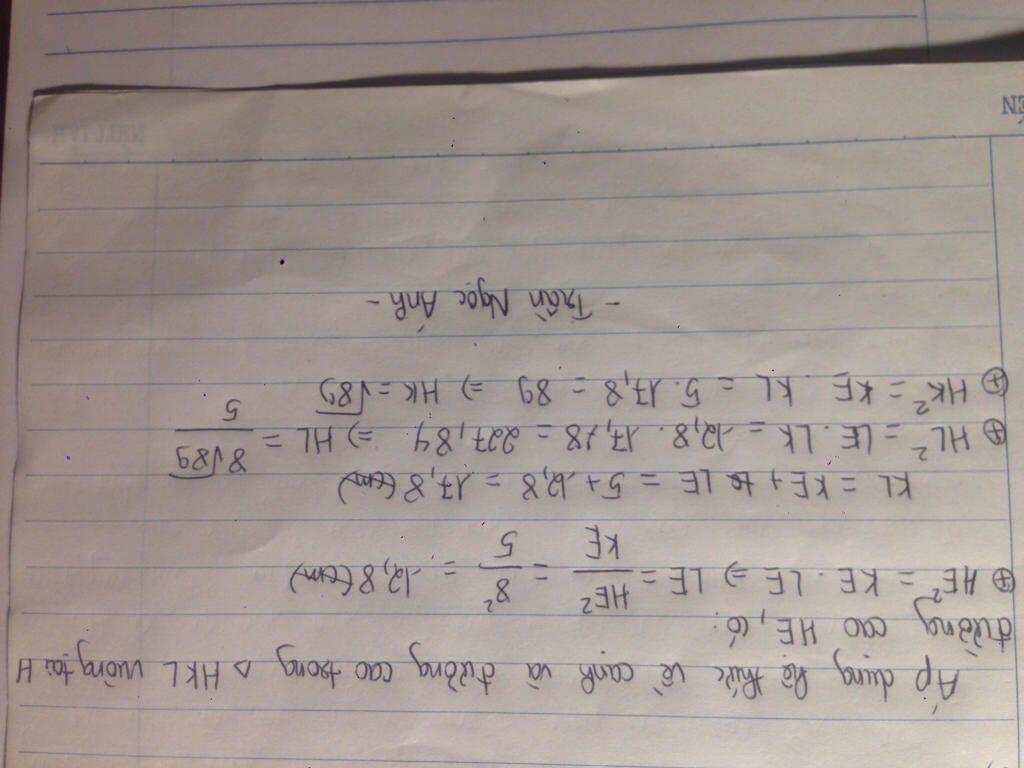 Áp dụng hệ thức về cạnh và đường cao trong △ HKL vuông tại H
đường cao HE, có:
⊕ HE² = KE . LE ⇒ LE = HE²/KE = 8²/5 = 12,8 (cm)
KL = KE + LE = 5 + 12,8 = 17,8 (cm)
⊕ HL² = LE . LK = 12,8 . 17,8 = 227,84 ⇒ HL = 8√89/5
⊕ HK² = KE . KL = 5 . 17,8 = 89 ⇒ HK = √89
- Trần Ngọc Ánh -